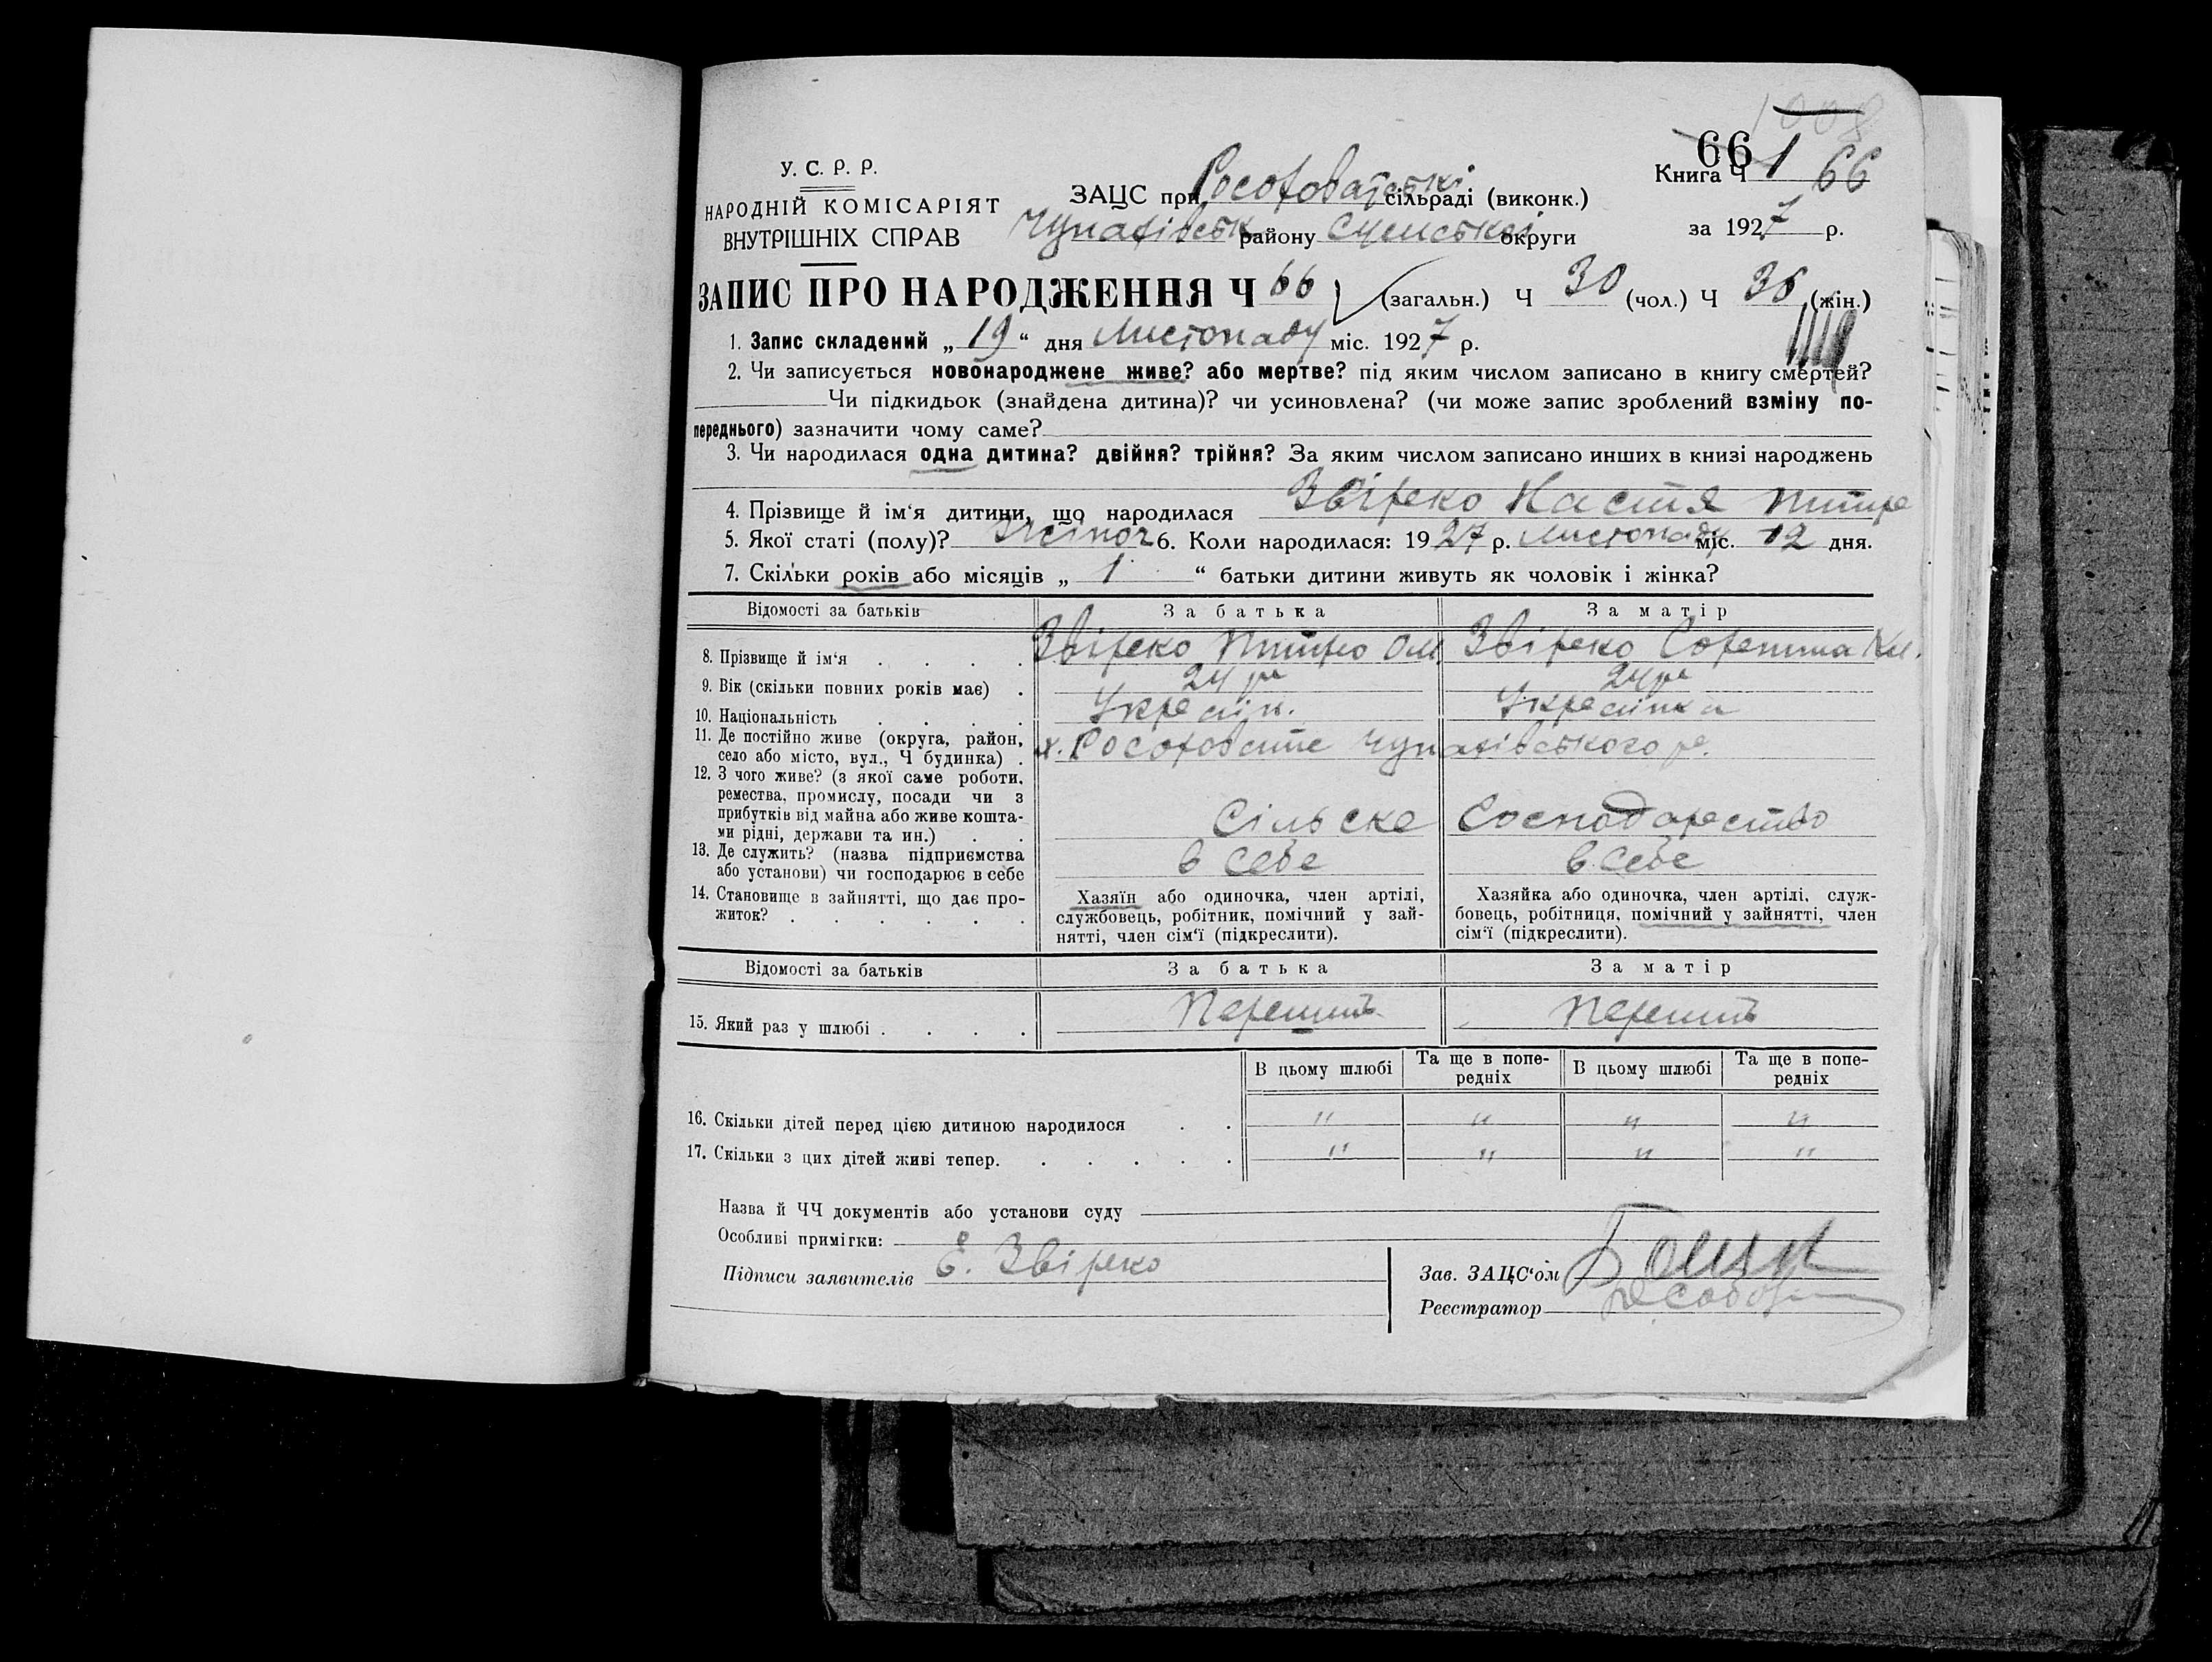 1008
У. С. Р. Р.
НАРОДНІЙ КОМІСАРІЯТ
ВНУТРІШНІХ СПРАВ
ЗАЦС при сільраді (виконк.)
Чупахівськ району Сумської округи
66
Книга Ч 1 66
за 1927 р.
ЗАПИС ПРО НАРОДЖЕННЯ Ч 66 (загальн.) Ч 30 (чол.) Ч 36 (жін.)
1. Запис складений „ 19 “ дня Листопаду міс. 1927 р.
2. Чи записується новонароджене живе? або мертве? під яким числом записано в книгу смертей?
Чи підкидьок (знайдена дитина)? чи усиновлена? (чи може запис зроблений взміну по-
переднього) зазначити чому саме?
3. Чи народилася одна дитина? двійня? трійня? За яким числом записано инших в книзі народжень
4. Прізвище й ім‘я дитини, що народилася Звіреко Настя
5. Якої статі (полу)? 6. Коли народилася: 1927 р. Листопаду міс. 12 дня.
7. Скільки років або місяців „ 1 “ батьки дитини живуть як чоловік і жінка?
Відомості за батьків За батька За матір
8. Прізвище й ім‘я . . . . Звіреко Питро Ом. Звіреко
9. Вік (скільки повних років має) . 24 р 24 р
10. Національність . . . . Україн. Українка
11. Де постійно живе (округа, район,
село або місто, вул., Ч будинка) . х. Чупахівського р.
12. З чого живе? (з якої саме роботи,
ремества, промислу, посади чи з
прибутків від майна або живе кошта-
ми рідні, держави та ин.) . . Сільске Господарство
13. Де служить? (назва підприємства
або установи) чи господарює в себе в себе в себе
14. Становище в зайнятті, що дає про-
житок? . . . . . .
Хазяїн або одиночка, член артілі,
службовець, робітник, помічний у зай-
нятті, член сім‘ї (підкреслити).
Хазяйка або одиночка, член артілі, служ-
бовець, робітниця, помічний у зайнятті, член
сім‘ї (підкреслити).
Відомості за батьків За батька За матір
15. Який раз у шлюбі . . . . Перший Перший
В цьому шлюбі Та ще в попе-
редніх В цьому шлюбі Та ще в попе-
редніх
16. Скільки дітей перед цією дитиною народилося . . " " " "
17. Скільки з цих дітей живі тепер. . . . . . " " " "
Назва й ЧЧ документів або установи суду
Особливі примітки:
Підписи заявителів Звіреко
Зав. ЗАЦС‘ом
Реєстратор